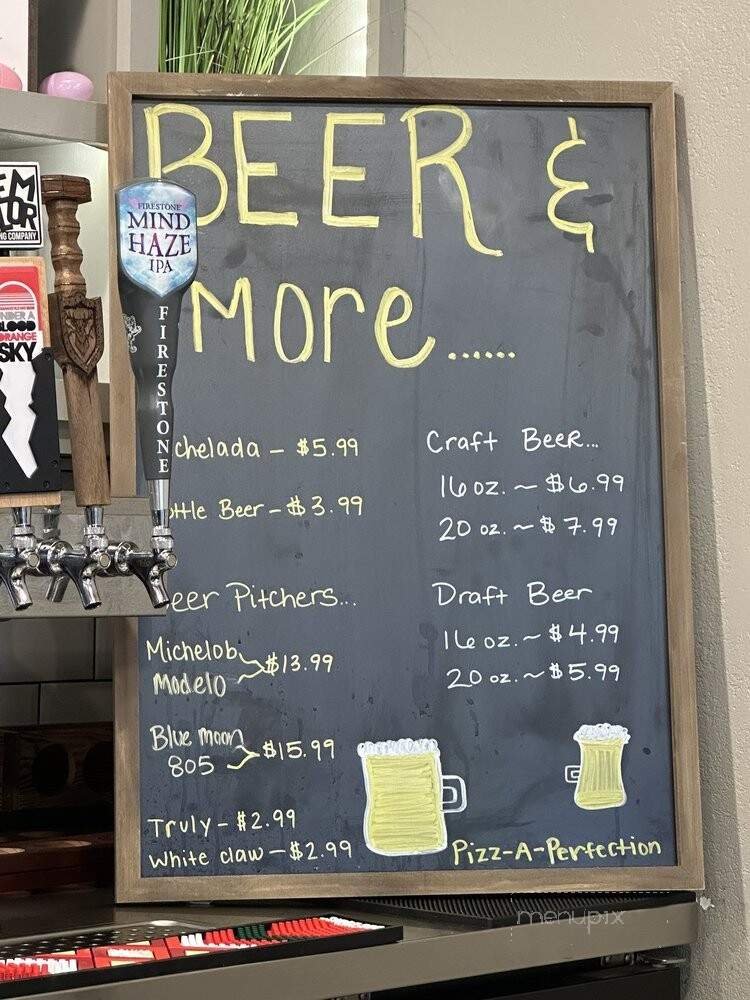 BEER &
More......
chelada - $5.99
ottle Beer - $3.99
eer Pitchers...
Michelob
Modelo
$13.99
Blue moon
805
$15.99
Truly - $2.99
White claw - $2.99
Craft Beer...
16 oz. ~ $6.99
20 oz. ~ $7.99
Draft Beer
16 oz. ~ $4.99
20 oz. ~ $5.99
Pizz-A-Perfection
FIRESTONE
MIND
HAZE
IPA
FIRESTONE
EM
TOR
NG COMPANY
NDER A
BLOOD
ORANGE
SKY
menupix